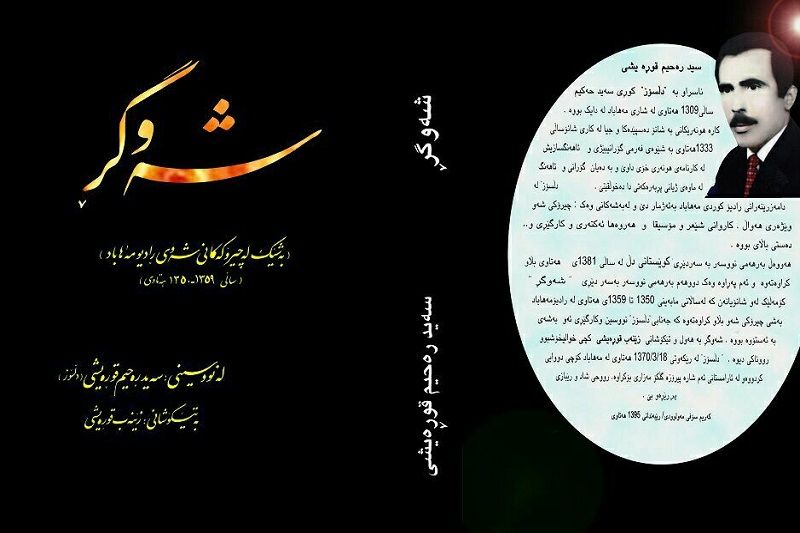 شەوگڕ
( بەشێک لە چیرۆکەکانی شەوی رادیو مەهاباد )
( ساڵی ١٣٥٩ - ١٣٥٠ هەتاوی )
لە نووسینی : سەید رەحیم قورەیشی ( دڵسۆز )
بە تێکۆشانی : زەینەب قورەیشی
شەوگڕ
سەید رەحیم قورەیشی
سید رەحیم قورە یشی
ناسراو بە "دڵسۆز" کوری سەید حەکیم
ساڵی1309 هەتاوی لە شاری مەهاباد لە دایک بووە .
کارە هونەریکانی بە شانۆ دەسپێدەکا و جیا لە کاری شانۆساڵی
1333هەتاوی بە شێوەی فەرمی گۆرانیبێژی و ئاهەنگسازیش
لە کارنامەی هونەری خۆی داوێ و بە دەیان گۆرانی و ئاهەنگ
لە ماوەی ژیانی پربەرەکەتی دا دەخولقێنێ . "دڵسۆز" لە
دامەزرێنەرانی رادیۆ کوردی مەهاباد بەئەژمار دێ و لەبەشەکانی وەک : چیرۆکی شەو
وێژەری هەواڵ . کاروانی شێعر و مۆسیقا و هەروەها ئەکتەری و کارگێری و..
دەستی باڵای بووە .
هەووەڵ بەرهەمی نووسەر بە سەردێری کوێستانی دڵ لە ساڵی 1381ی هەتاوی بڵاو
کراوەتەوە و ئەم پەراوە وەک دووهەم بەرهەمی نووسەر بەسەر دێری "شەوگڕ"
کۆمەڵێک لەو شانۆیانەن کە لەساڵانی مابەینی 1350 تا 1359ی هەتاوی لە رادیۆمەهاباد
بەشی چیرۆکی شەو بڵاو کراوەتەوە کە جەنابی"دڵسۆز" نووسین وکارگێری ئەو بەشەی
بە ئەستۆوە بووە . شەوگڕ بە هەول و تێکۆشانی زێنەب قورەیشی کچی خوالیخۆشبوو
رووناکی دیوە . "دڵسۆز" لە رێکەوتی 1370/3/18 هەتاوی لە مەهاباد کۆچی دووایی
کردووەو لە ئارامستانی ئەم شارە پیرۆزە گلکۆ مەزاری بۆکراوە. رووحی شاد و رێبازی
پر رێبو بێ .
کەریم سۆفی مەولوودی/ رێبەندانی 1395 هەتاوی